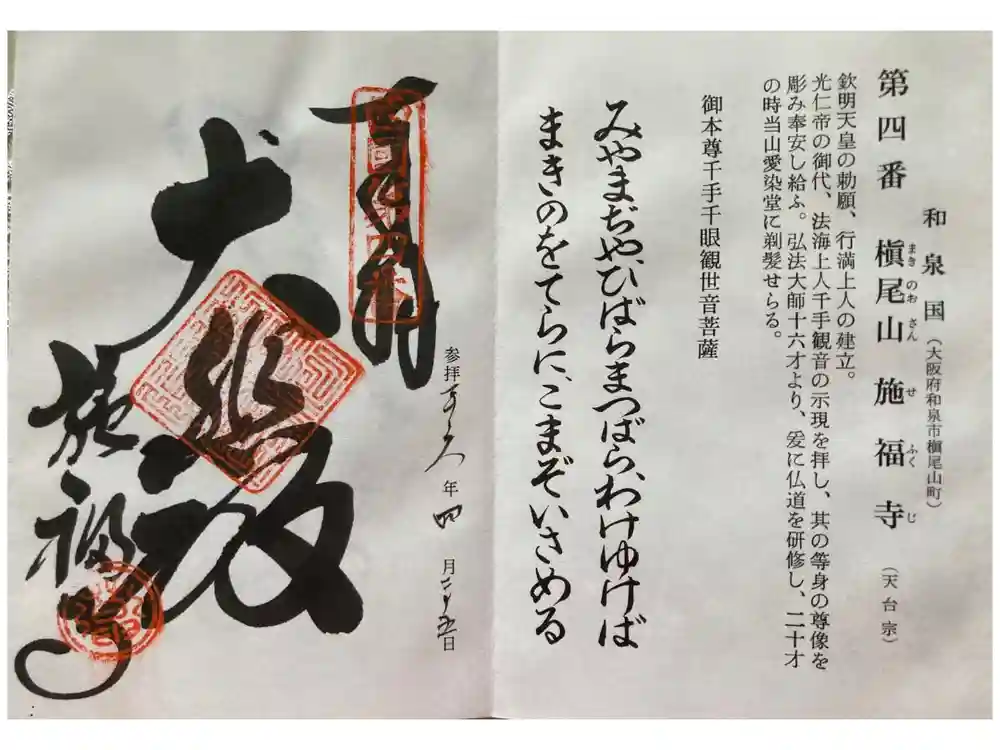 和泉国(大阪府和泉市槇尾山町)
第四番 槇尾山施福寺(天台宗)
まき のお さん せ ふく じ
欽明天皇の勅願、行満上人の建立。
光仁帝の御代、法海上人千手観音の示現を拝し、其の等身の尊像を
彫み奉安し給ふ。弘法大師十六才より、爰に仏道を研修し、二十才
の時当山愛染堂に剃髪せらる。
御本尊千手千眼観世音菩薩
みやまぢや、ひばらまつばら、わけゆけば
まきのをてらに、こまぞいさめる
参拝 年 四 月二十五日
大悲殿
施福寺